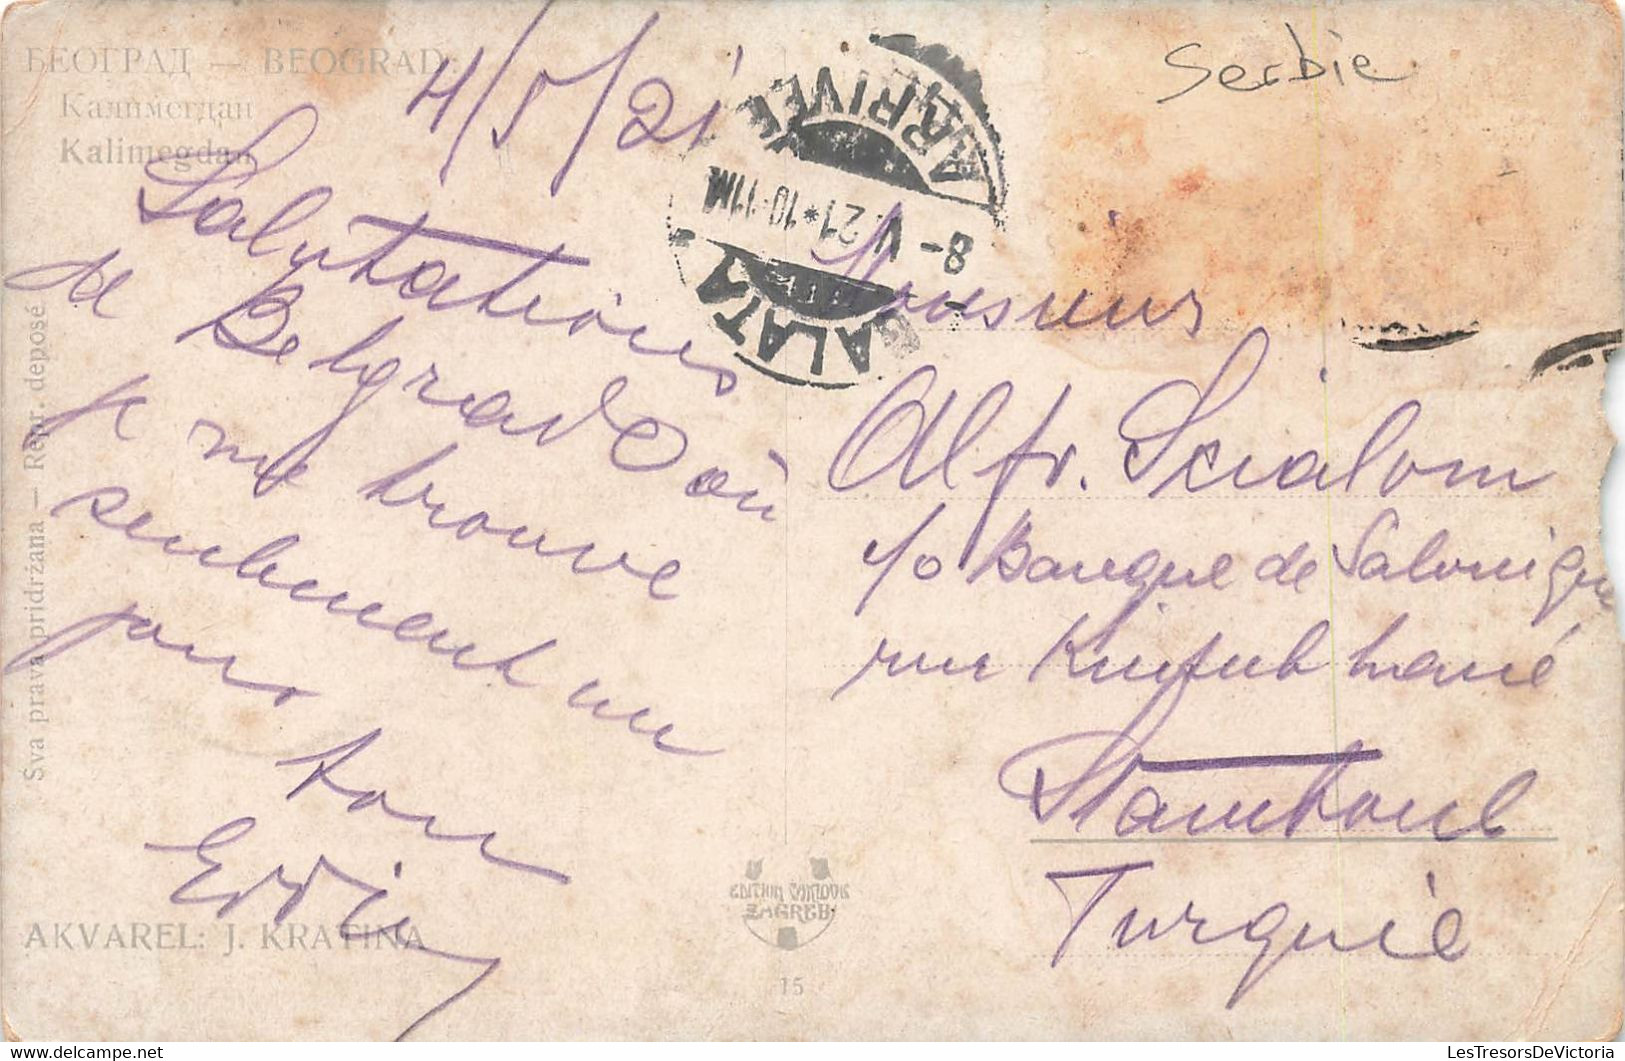 БЕОГРАД — BEOGRAD:
Калимегдан
Kalimegdan
4/5/21
Salutations
de Belgrade où
je me trouve
seulement un
jour ton
Eddie
Sva prava pridržana — Repr. deposé
AKVAREL: J. KRATINA
EDITION
ZAGREB
15
Serbie
ARRIVÉE
8-V 21*10-11M
GALATA 1
Monsieur
Alfr. Scialom
c/o Banque de Salonique
rue
Stamboul
Turquie
LesTresorsDeVictoria